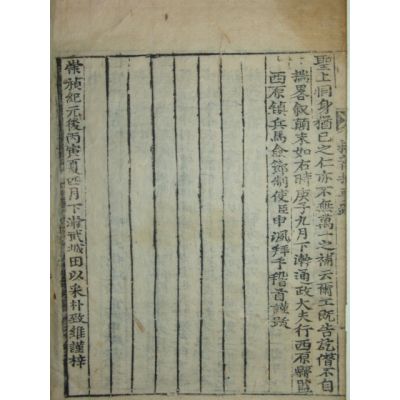 聖上恫身猶已之仁亦不無萬一之補云爾工旣告訖僭不自
揣畧敘顚末如右時庚子九月下澣通政大夫行西原縣監
西原鎭兵馬僉節制使臣申洬拜手稽首謹跋
崇禎紀元後丙寅夏四月下澣武城田以采朴致維謹梓